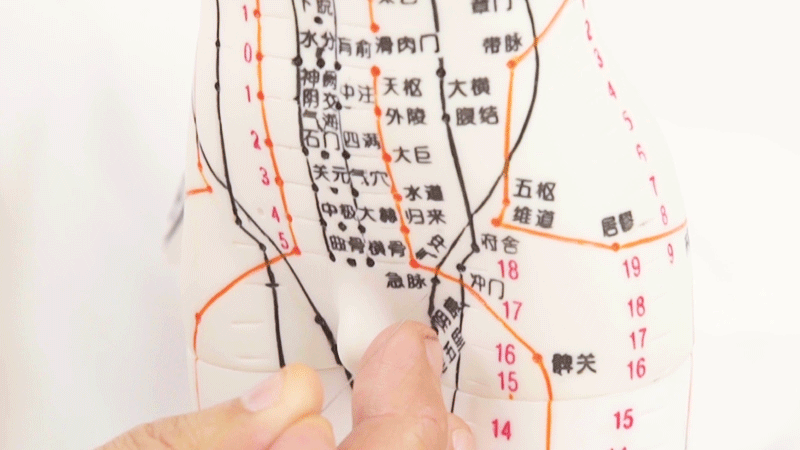 1
0
1
2
3
4
5
下脘
水分
神阙
阴交
气海
石门
关元
中极
曲骨
肓俞
中注
四满
气穴
大赫
横骨
滑肉门
天枢
外陵
大巨
水道
归来
气冲
急脉
章门
带脉
大横
腹结
五枢
维道
府舍
冲门
居髎
髀关
1
2
3
4
5
6
7
8
9
18
17
16
15
14
19
18
17
16
15